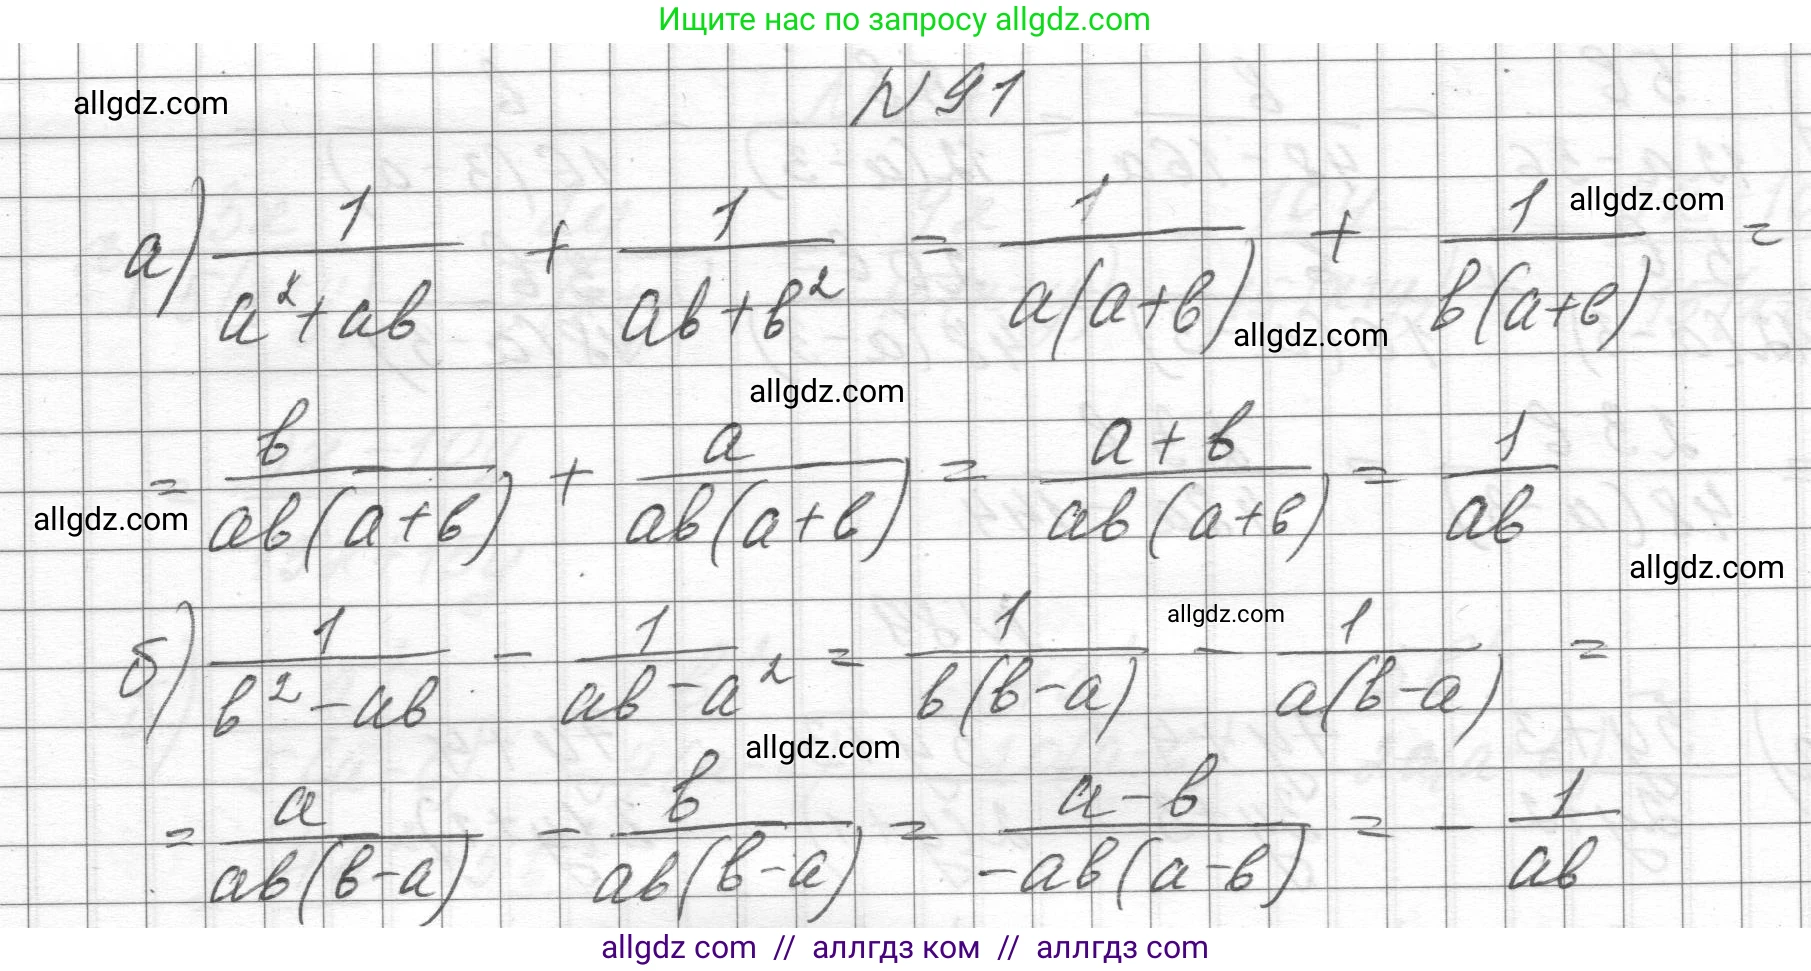 Ищите нас по запросу allgdz.com
allgdz.com
№ 91
а) 1/(a²+ab) + 1/(ab+b²) = 1/(a(a+b)) + 1/(b(a+b)) =
allgdz.com
allgdz.com
allgdz.com
= b/(ab(a+b)) + a/(ab(a+b)) = (a+b)/(ab(a+b)) = 1/(ab)
allgdz.com
allgdz.com
б) 1/(b²-ab) - 1/(ab-a²) = 1/(b(b-a)) - 1/(a(b-a)) =
allgdz.com
allgdz.com
= a/(ab(b-a)) - b/(ab(b-a)) = (a-b)/(-ab(a-b)) = - 1/(ab)
allgdz com // аллгдз ком // аллгдз com